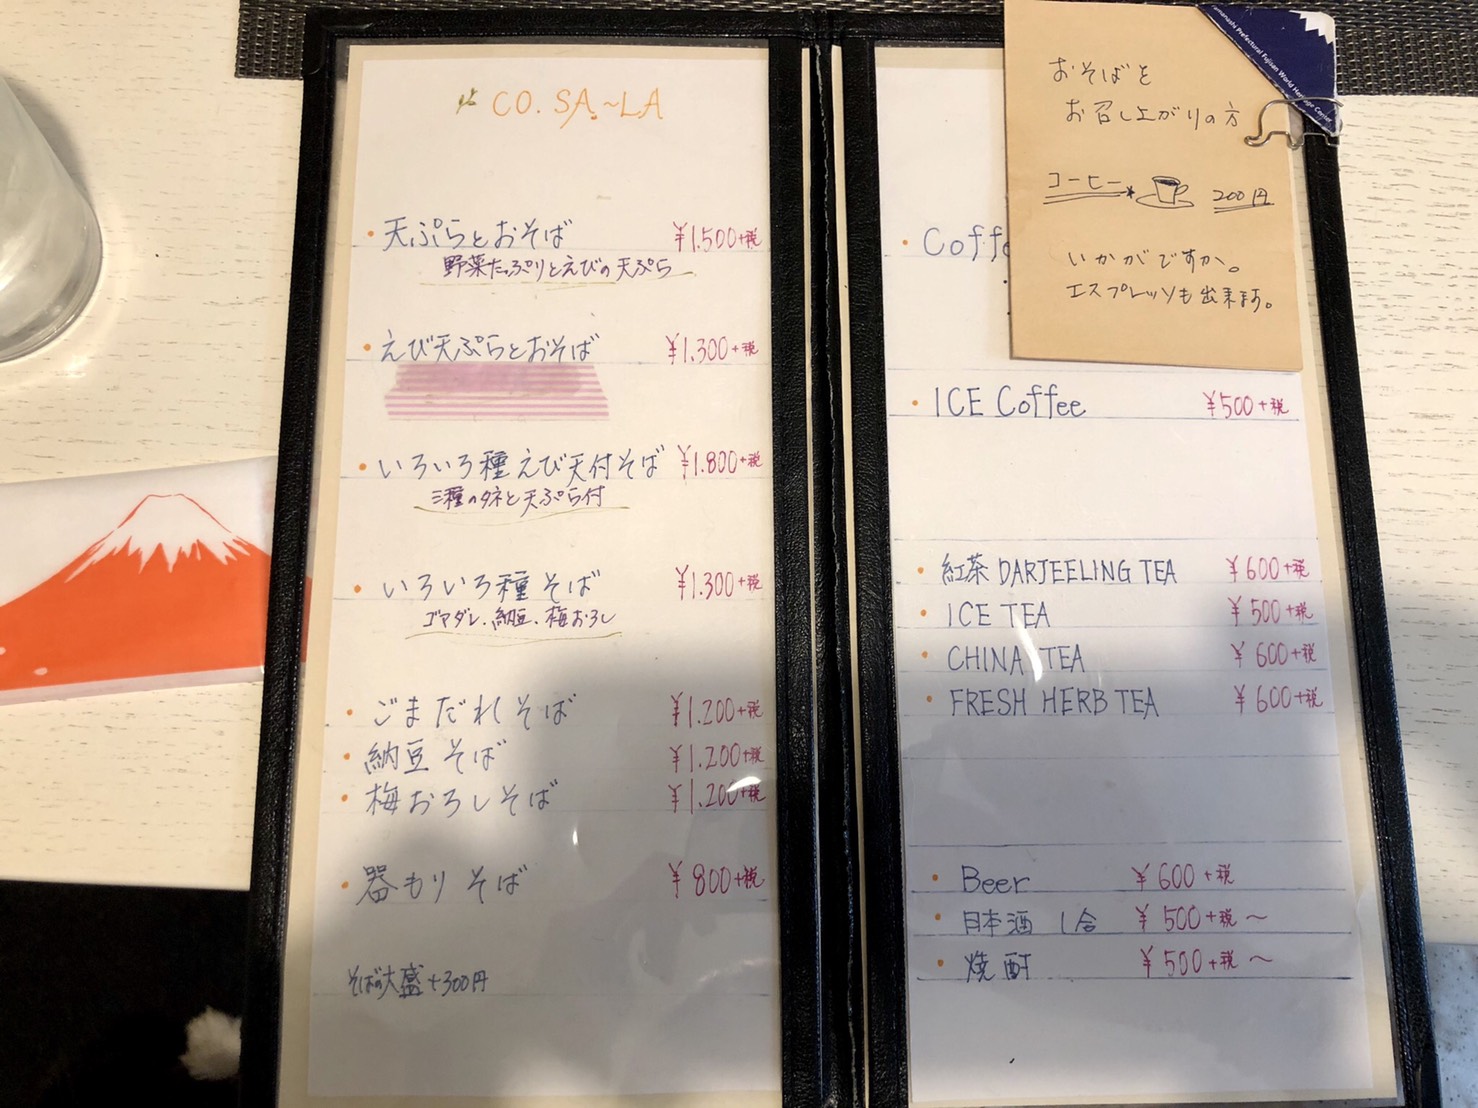 CO. SA~LA
・天ぷらとおそば ¥1.500+税
野菜たっぷりとえびの天ぷら
・えび天ぷらとおそば ¥1.300+税
・いろいろ種えび天付そば ¥1.800+税
三種のタネと天ぷら付
・いろいろ種そば ¥1.300+税
ゴマダレ、納豆、梅おろし
・ごまだれそば ¥1.200+税
・納豆そば ¥1.200+税
・梅おろしそば ¥1.200+税
・器もりそば ¥800+税
そばの大盛+300円
おそばを
お召し上がりの方
コーヒー 200円
いかがですか。
エスプレッソも出来ます。
Yamanashi Prefectural Fujisan World Heritage Center
・ICE Coffee ¥500+税
・紅茶 DARJEELING TEA ¥600+税
・ICE TEA ¥500+税
・CHINA TEA ¥600+税
・FRESH HERB TEA ¥600+税
・Beer ¥600+税
・日本酒 1合 ¥500+税〜
・焼酎 ¥500+税〜